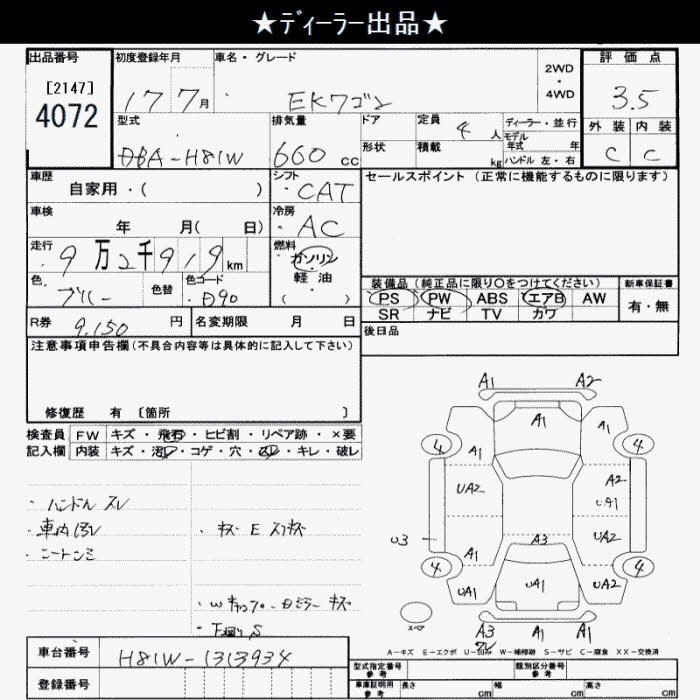 ★ディーラー出品★
出品番号
[2147]
4072
初度登録年月
17 7月
車名・グレード
EKワゴン
2WD
・
4WD
評価点
3.5
外装 内装
C C
型式
DBA-H81W
排気量
660 cc
ドア
形状
定員 4 人
積載 kg
ディーラー・並行
モデル
年式 年
ハンドル 左・右
車歴
自家用・( )
シフト
CAT
セールスポイント (正常に機能するものに限ります)
車検
年 月( 日)
冷房
AC
走行
9万2千919km
燃料
ガソリン
・
軽油
( )
色
ブルー
色替
色コード
D90
装備品 (純正品に限り〇をつけてください)
PS PW ABS エアB AW
SR ナビ TV カワ
新車保証書
有・無
R券 9,150 円
名変期限 月 日
後日品
注意事項申告欄(不具合内容等は具体的に記入して下さい)
修復歴 有 〔箇所 〕
検査員
記入欄
FW キズ・飛石・ヒビ割・リペア跡・×要
内装 キズ・汚レ・コゲ・穴・凹・キレ・破レ
・ハンドル スレ
・車内汚レ
・シートシミ
・キズ E スリキズ
・Wキャップ・Dミラーキズ
・下廻り S
A1 A2
A1
4 A1 A1 4
UA2 A2
UA1
U3 A3 UA2
4 A1 4
UA1 UA1 UA2
スペア
A3 A1 A1
ワレ
A-キズ E-エクボ U-凹み W-補修跡 S-サビ C-腐食 XX-交換済
車台番号 H81W-1313934
登録番号
型式指定番号
参考
類別区分番号
参考
車庫証明用
参考
長さ cm 幅 cm 高さ cm